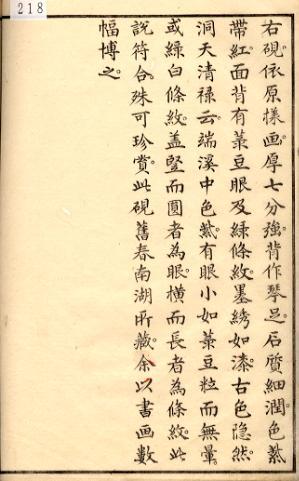 218
右硯。依原樣画。厚七分強。背作琴足。石質細潤。色紫
帶紅。面背有菉豆眼及綠條紋。墨綉如漆。古色隐然。
洞天清祿云。端溪中色紫。有眼小如菉豆粒而無暈。
或綠白條紋。盖竪而圓者為眼。橫而長者為條紋。此
說符合。殊可珍賞。此硯舊春南湖所藏。余以書画數
幅博之。